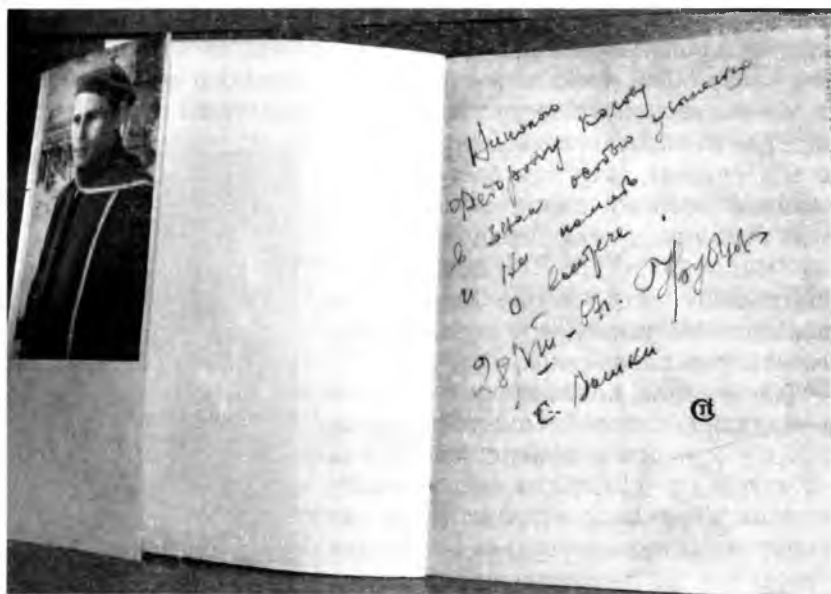 Николаю
Федоровичу
в знак особого уважения
и на память
о встрече.
28 VIII – 87г.
с. Вашки